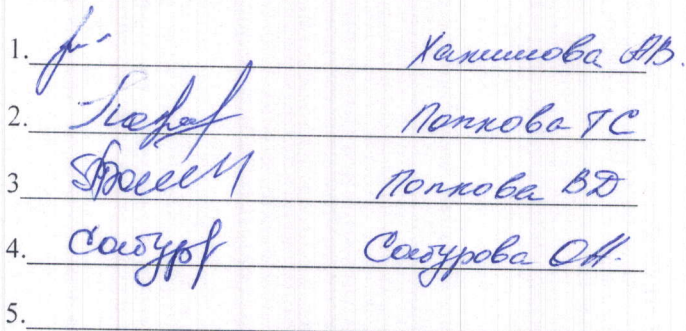 1. Хапилова АВ.
2. Попкова ТС
3 Попкова ВД
4. Сабур Сабурова ОН.
5.